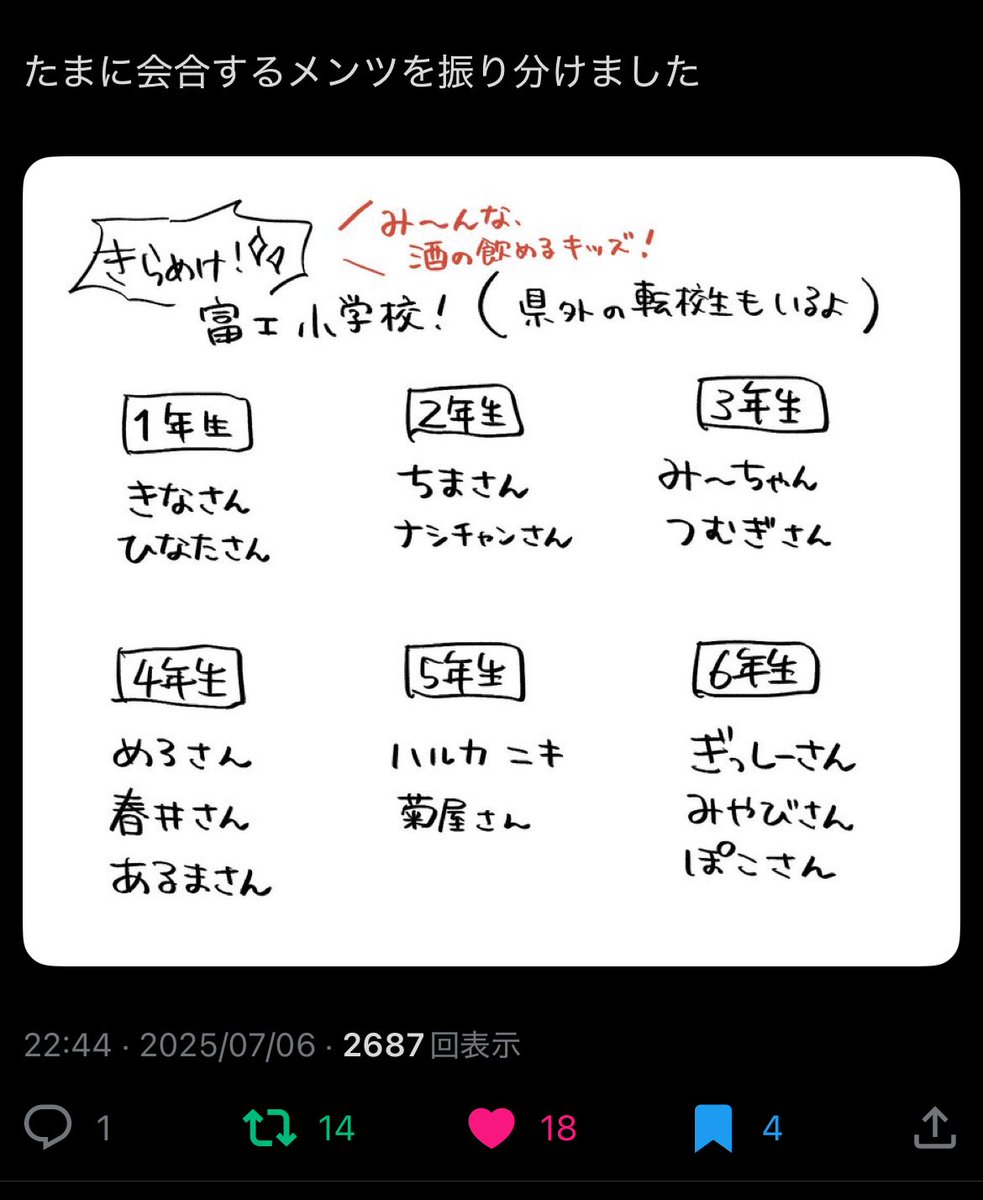 たまに会合するメンツを振り分けました
きらめけ!
み〜んな、
酒の飲めるキッズ!
富士小学校!(県外の転校生もいるよ)
1年生
きなさん
ひなたさん
2年生
ちまさん
ナシチャンさん
3年生
み〜ちゃん
つむぎさん
4年生
めろさん
春井さん
あるまさん
5年生
ハルカニキ
菊屋さん
6年生
ぎっしーさん
みやびさん
ぽこさん
22:44 · 2025/07/06 · 2687回表示
1
14
18
4